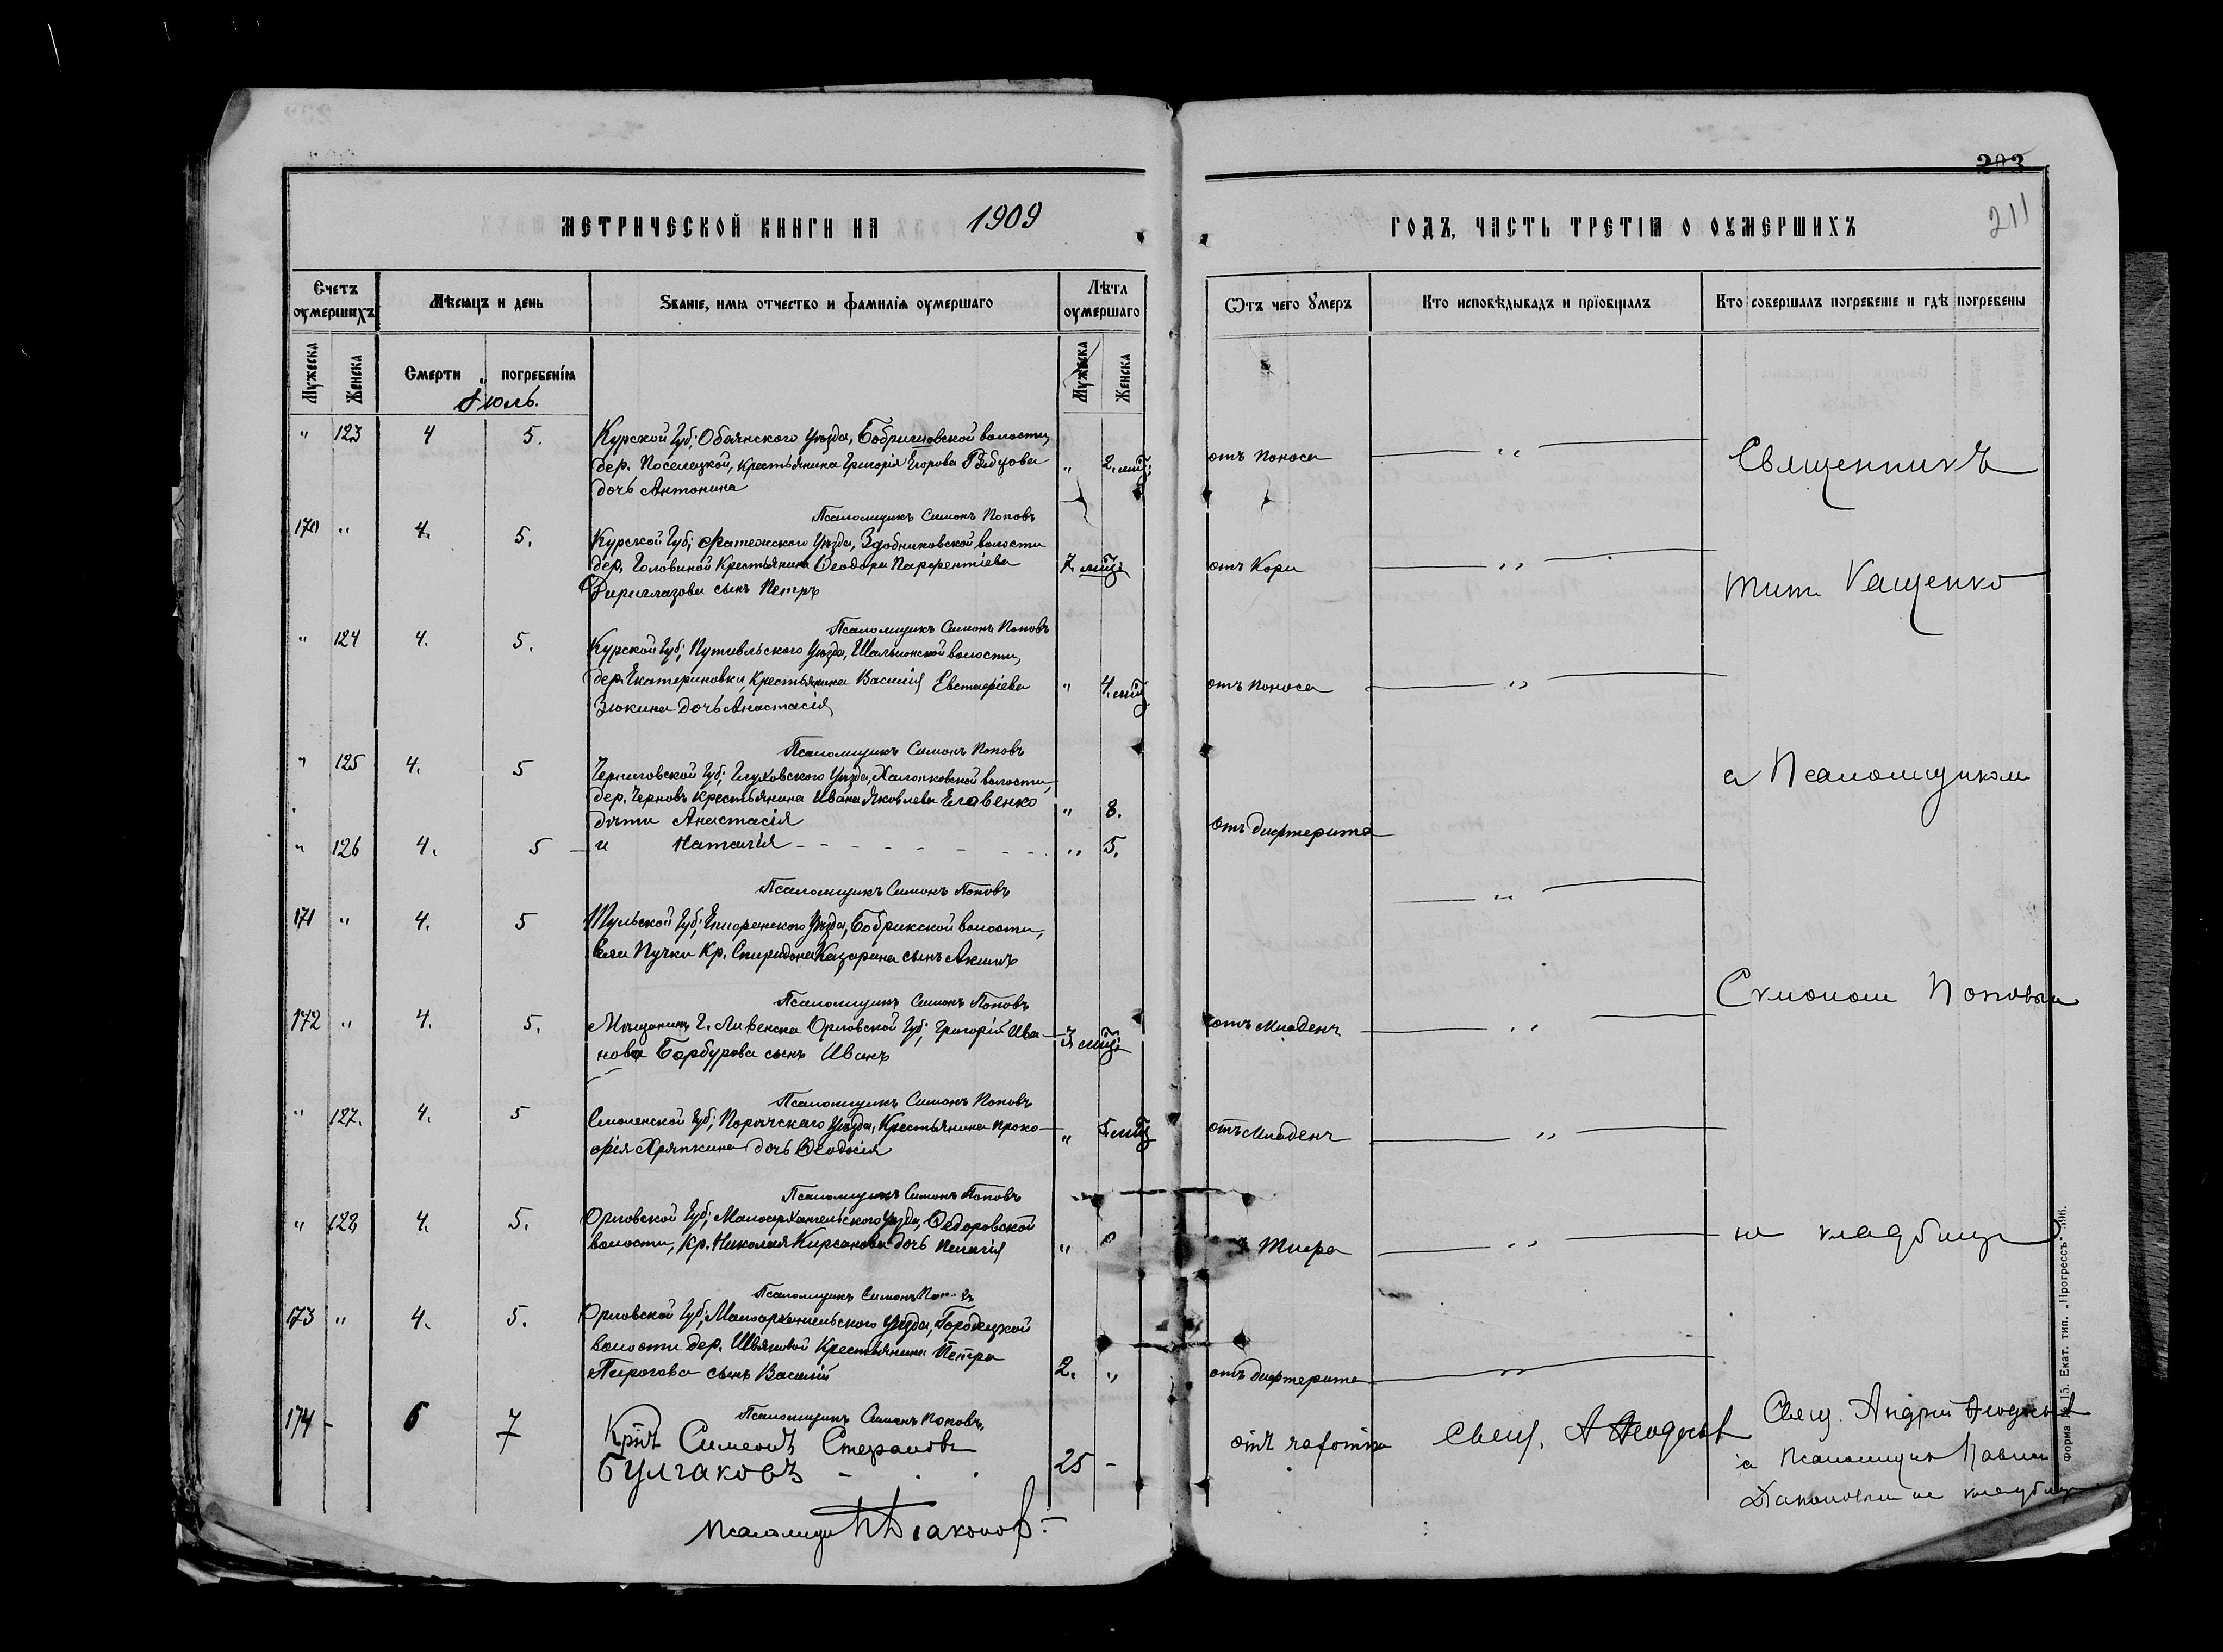 203
211
МЕТРИЧЕСКОЙ КНИГИ НА 1909 ГОДЪ, ЧАСТЬ ТРЕТІЯ О ОУМЕРШИХЪ
Счетъ оумершихъ
Мѣсяцъ и день
Званіе, имя отчество и фамилія оумершаго
Лѣта оумершаго
Ѿтъ чего оумеръ
Кто исповѣдывалъ и прїобщалъ
Кто совершалъ погребеніе и гдѣ погребены
Мужеска
Женска
Смерти
погребенія
Мужеска
Женска
Іюль.
" 123 4 5. Курской губ; Обоянскаго уѣзда, волости,
дер. Поселецкой, крестьянина Григорія Егорова " 2. мѣс: отъ поноса " Священникъ
дочь Антонина
Псаломщикъ Симонъ Поповъ
170 " 4. 5. Курской губ; Фатежскаго уѣзда, волости
дер. Головиной крестьянина Ѳеодора Парфентіева 7 мѣс: отъ Кори " Титъ Кащенко
сынъ Петръ
Псаломщикъ Симонъ Поповъ
" 124 4. 5. Курской губ; Путивльскаго уѣзда, волости,
дер. Екатериновки, крестьянина Василія Евстафіева " 4. мѣс отъ поноса "
Зюкина дочь Анастасія
Псаломщикъ Симонъ Поповъ
" 125 4. 5 Черниговской губ; Глуховскаго уѣзда, волости, съ Псаломщикомъ
дер. Черновъ крестьянина Ивана Яковлева " 8.
дѣти Анастасія отъ дифтерита
" 126 4. 5 и Наталія " 5.
Псаломщикъ Симонъ Поповъ "
171 " 4. 5 Тульской губ; Епифанскаго уѣзда, Бобрикской волости,
села Пучки Кр. Спиридона Казарина сынъ Акимъ
Симономъ Поповымъ
Псаломщикъ Симонъ Поповъ
172 " 4. 5. Мѣщанинъ г. Ливенска Орловской губ; Григорій Ива- 3 мѣс: отъ младенч "
нова Барбурова сынъ Иванъ
Псаломщикъ Симонъ Поповъ
" 127. 4. 5 Смоленской губ; Порѣчскаго уѣзда, крестьянина Проко- " 5 мѣс отъ младенч "
фія Хряпкина дочь Ѳеодосія
Псаломщикъ Симонъ Поповъ
" 128 4. 5. Орловской губ; Малоархангельскаго уѣзда, Ѳедоровской на кладбищѣ
волости, Кр. Николая Кирсанова дочь Пелагія " Тифа "
Псаломщикъ Симонъ
173 " 4. 5. Орловской губ; Малоархангельскаго уѣзда, Городецкой
волости дер. крестьянина Петра
Пирогова сынъ Василій 2. " отъ дифтерита "
Псаломщикъ Симонъ Поповъ
174 - 6 7 Крін Симеонъ Стефановъ отъ Свящ. А Свящ. Андрей
Булгаковъ - 25 - и псаломщик Павелъ
на кладбищѣ
псаломщ П Діаконов
Форма № 15. Екат. тип. „Прогрессъ" 896.